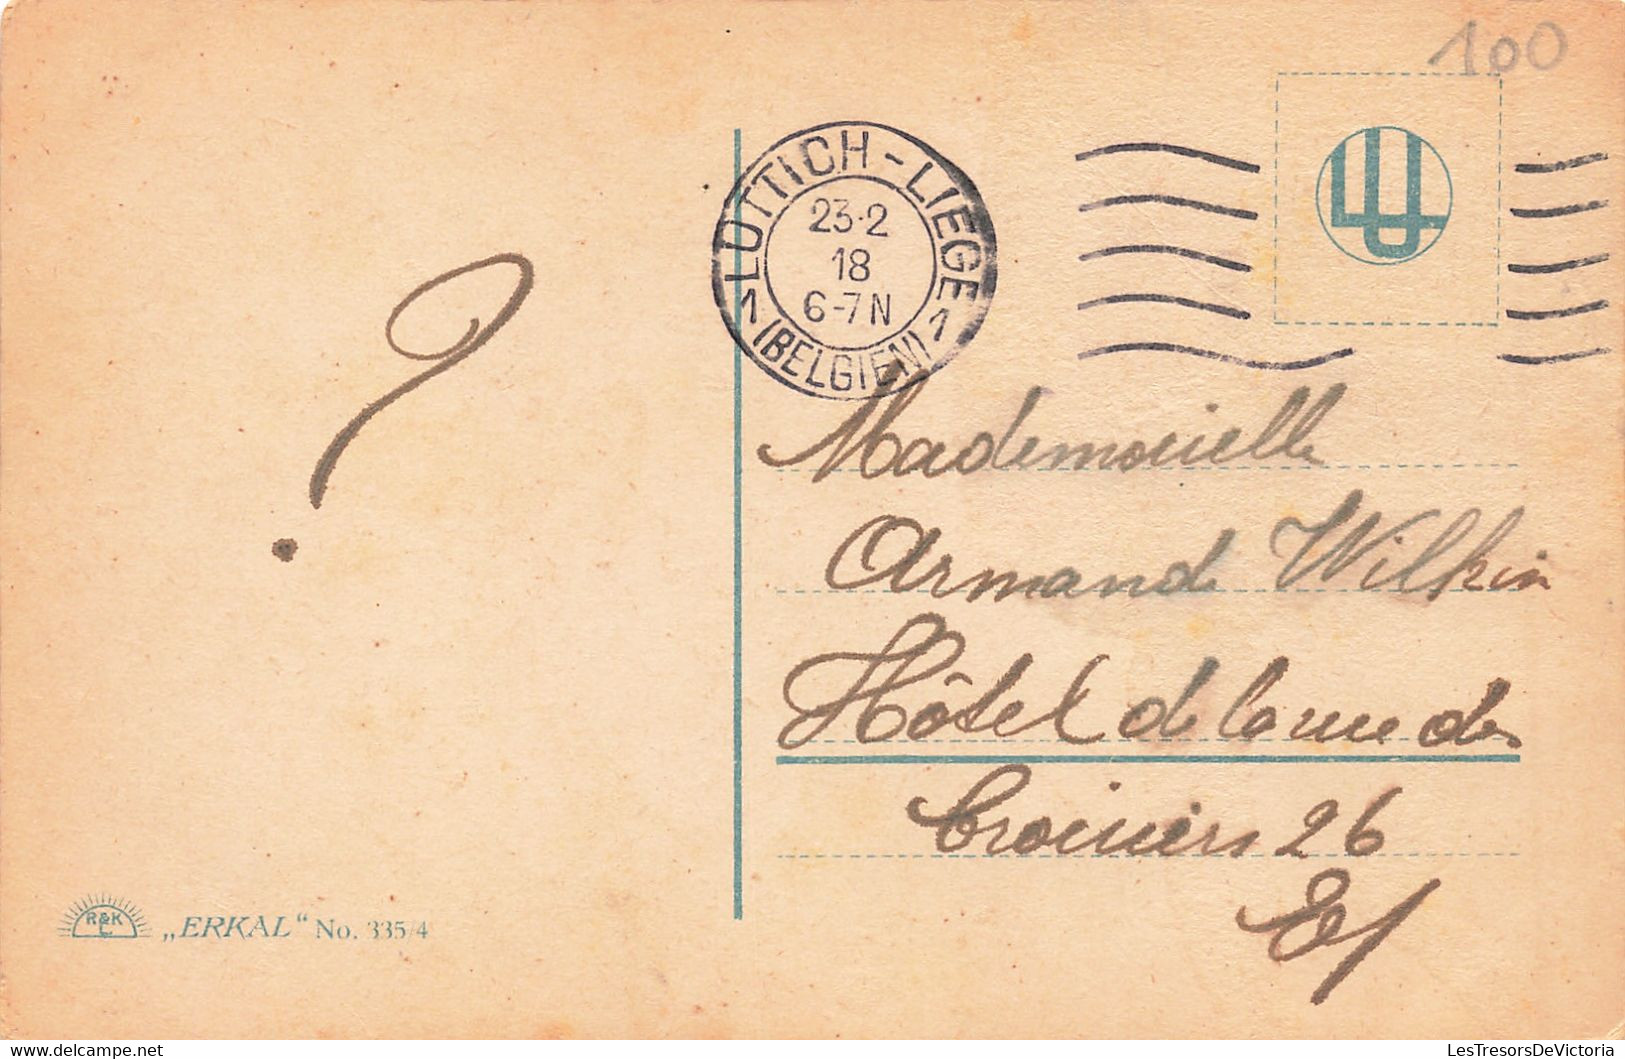 100
LÜTTICH - LIEGE
23·2
18
6-7 N
1 (BELGIEN) 1
LU
?
Mademoiselle
Armande Wilkin
Hôtel de la rue des
Croisiers 26
E/
R&K
L
„ERKAL“ No. 335/4
LesTresorsDeVictoria
www.delcampe.net